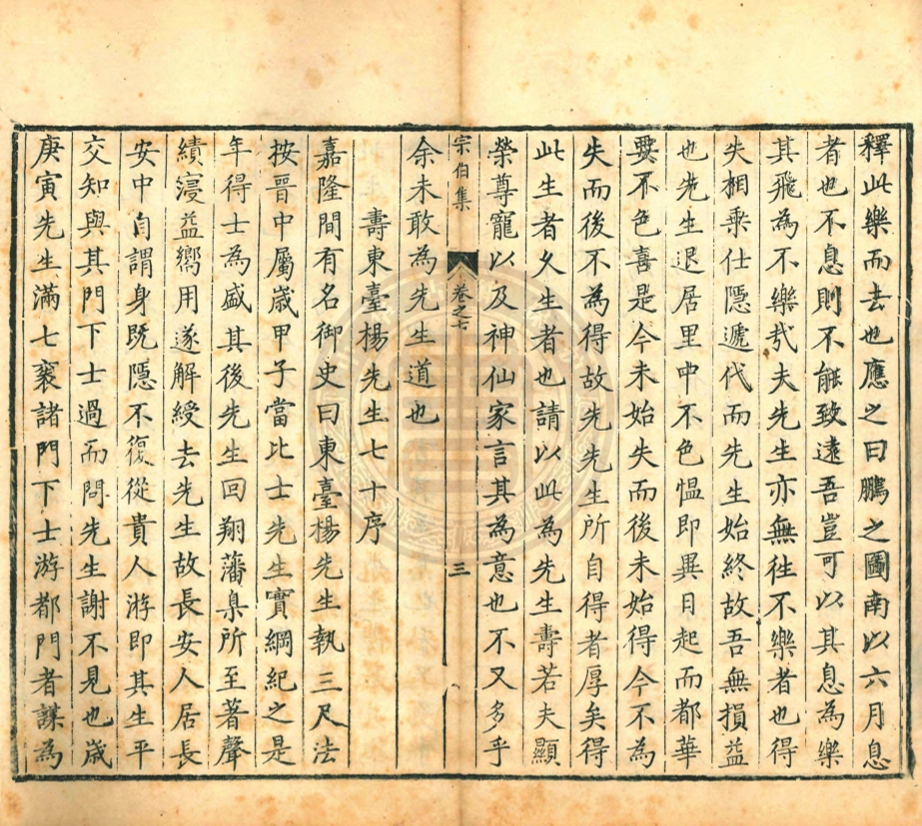 釋此樂而去也應之曰鵬之圖南以六月息
者也不息則不能致遠吾豈可以其息為樂
其飛為不樂哉夫先生亦無徃不樂者也得
失相乘仕隱遞代而先生始終故吾無損益
也先生退居里中不色慍即異日起而都華
要不色喜是今未始失而後未始得今不為
失而後不為得故先先生所自得者厚矣得
此生者久生者也請以此為先生壽若夫顯
榮尊寵以及神仙家言其為意也不又多乎
宗伯集 卷之七 三
余未敢為先生道也
壽東臺楊先生七十序
嘉隆間有名御史曰東臺楊先生執三尺法
按晋中屬歲甲子當比士先生實綱紀之是
年得士為盛其後先生回翔藩臬所至著聲
績寖益嚮用遂解綬去先生故長安人居長
安中自謂身既隱不復從貴人游即其生平
交知與其門下士過而問先生謝不見也歲
庚寅先生滿七袠諸門下士游都門者謀為